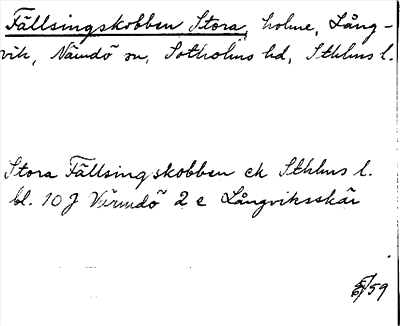 Fällsingskobben Stora, holme, Lång-
vik, Nämdö sn, Sotholms hd, Sthlms l.
Stora Fällsingskobben ek Sthlms l.
bl. 10 J Värmdö 2 e Långviksskär
/59